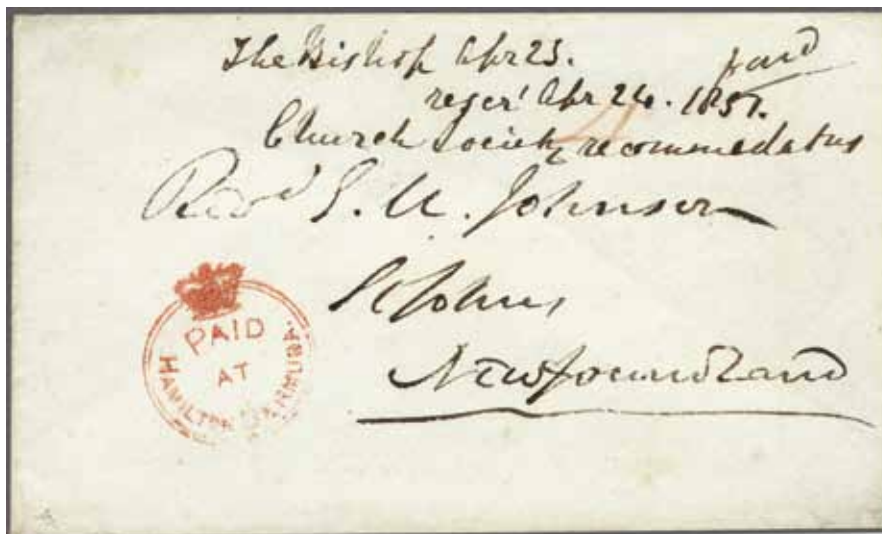 The Bishop Apr 23.
paid
recd Apr 24. 1851.
Church Society recommedatus
Revd J. M. Johnson
St Johns
Newfoundland
PAID
AT
HAMILTON BERMUDA.